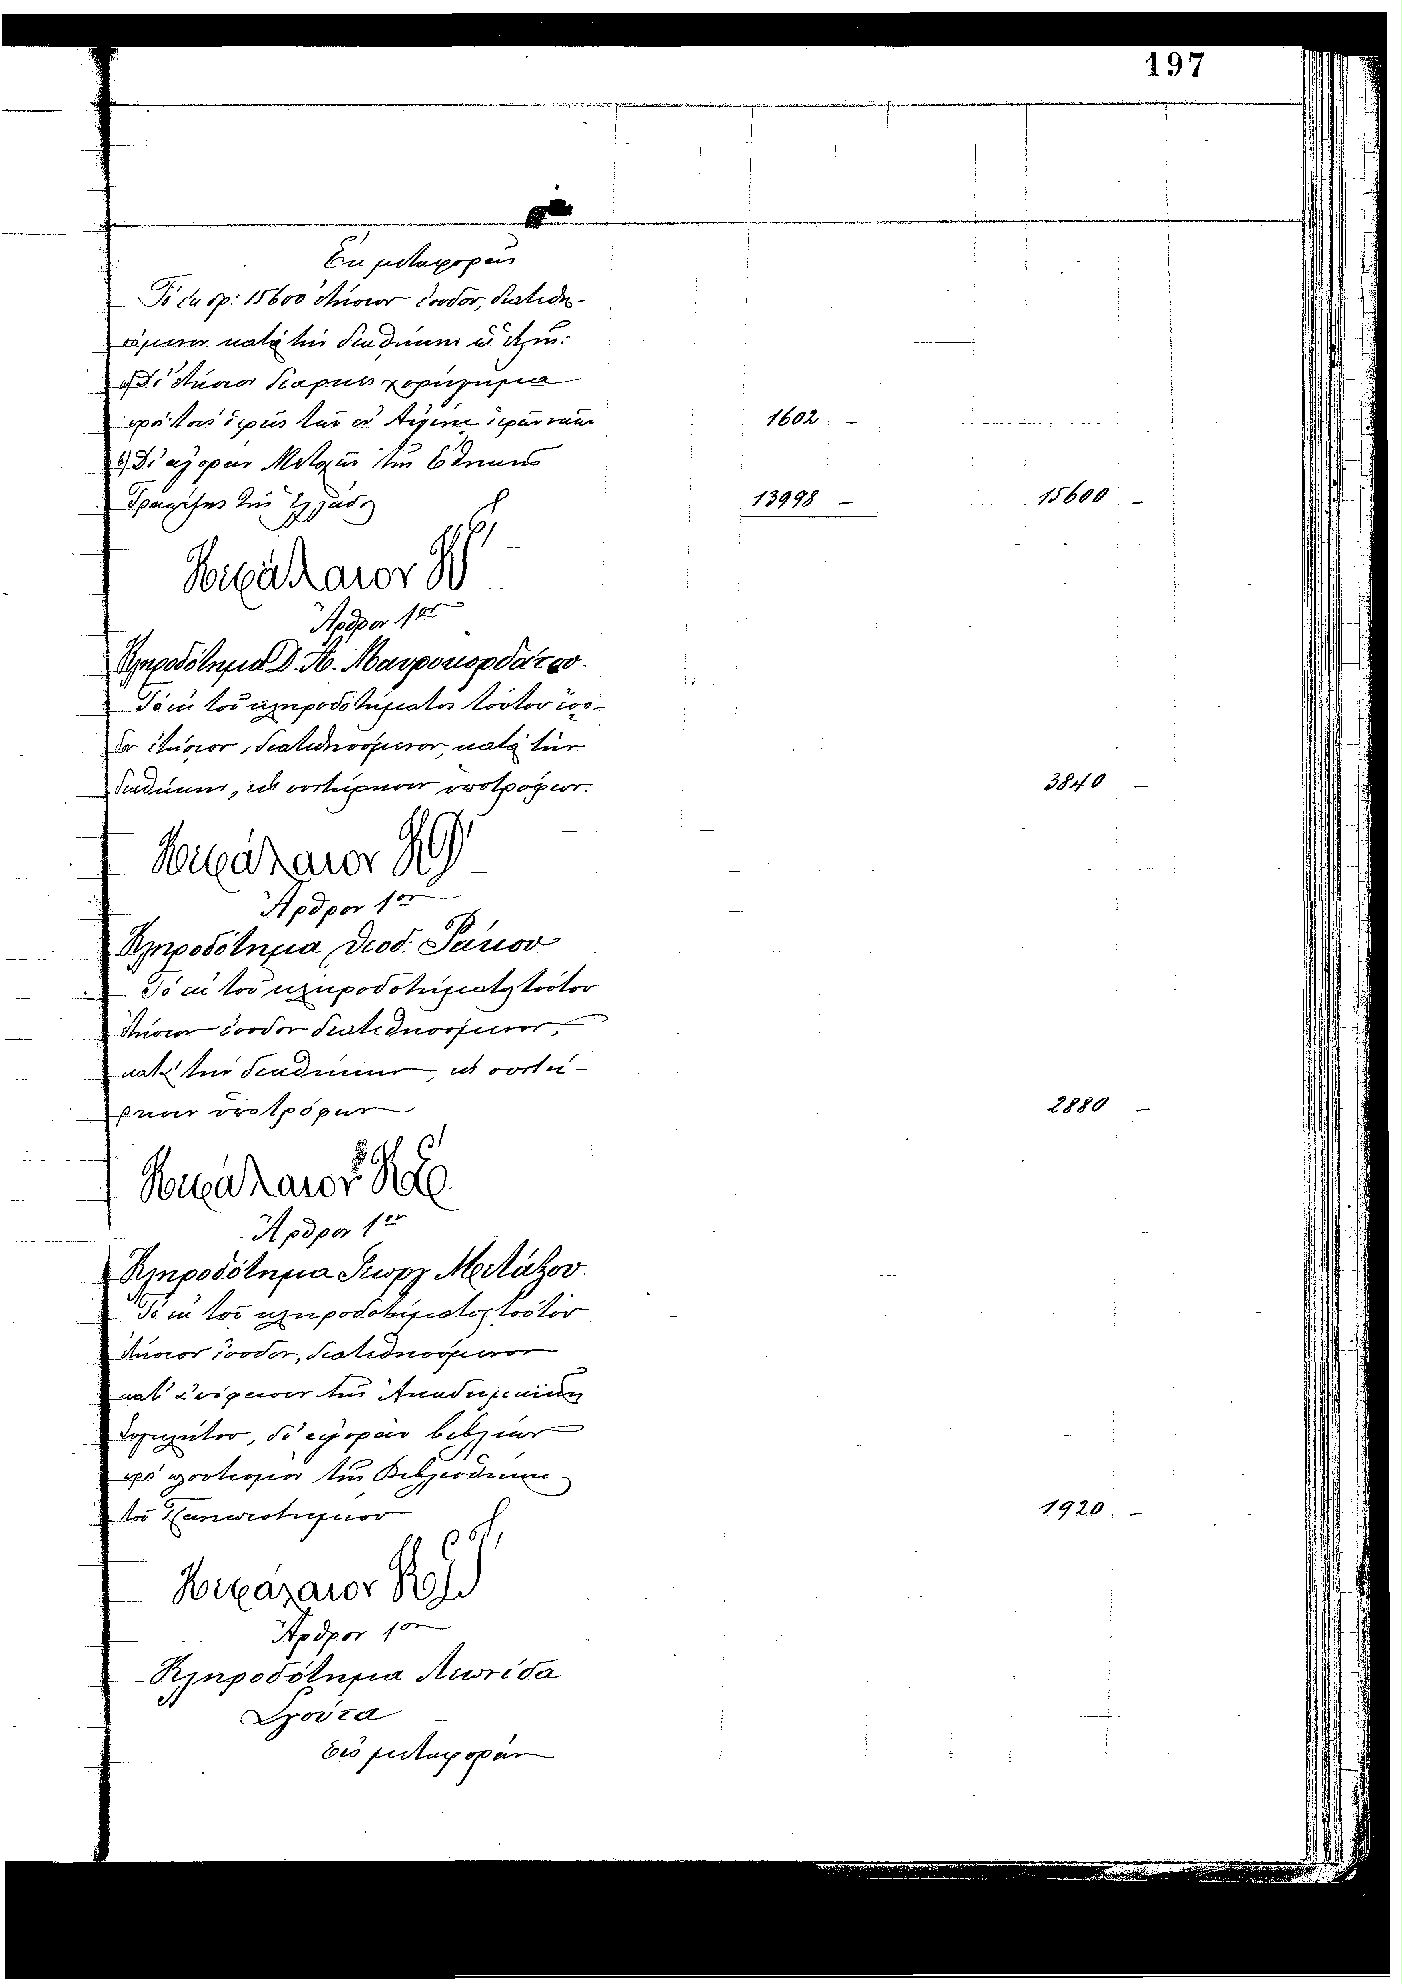 197
Ἐκ μεταφορᾶς
Τὸ ἐκ δρ: 15600 ἐτήσιον ἔσοδον, διατιθη-
σόμενον κατὰ τὴν διαθήκην ὡς ἑξῆς:
α) Δι' ἐτήσιον διαρκὲς χορήγημα
πρὸς τοὺς ἱερεῖς τῶν ἐν Αἰγίνῃ ἱερῶν ναῶν 1602 –
β) Δι' ἀγορὰν Μετοχῶν τῆς Ἐθνικῆς
Τραπέζης τῆς Ἑλλάδος 13998 – 15600 –
Κεφάλαιον ΚΓ'
Ἄρθρον 1ον
Κληροδότημα Δ. Α. Μαυροκορδάτου.
Τὸ ἐκ τοῦ κληροδοτήματος τούτου ἔσο-
δον ἐτήσιον, διατεθησόμενον, κατὰ τὴν
διαθήκην, εἰς συντήρησιν ὑποτρόφων. 3840 –
Κεφάλαιον ΚΔ'
Ἄρθρον 1ον
Κληροδότημα Θεοδ. Ράκου
Τὸ ἐκ τοῦ κληροδοτήματος τούτου
ἐτήσιον ἔσοδον διατεθησόμενον,
κατὰ τὴν διαθήκην, εἰς συντή-
ρησιν ὑποτρόφων 2880 –
Κεφάλαιον ΚΕ'
Ἄρθρον 1ον
Κληροδότημα Γεωργ. Μελάζου.
Τὸ ἐκ τοῦ κληροδοτήματος τούτου
ἐτήσιον ἔσοδον, διατεθησόμενον
κατ' ἀπόφασιν τῆς Ἀκαδημαϊκῆς
Συγκλήτου, δι' ἀγορὰν βιβλίων
πρὸς πλουτισμὸν τῆς Βιβλιοθήκης
τοῦ Πανεπιστημίου 1920 –
Κεφάλαιον ΚΣΤ'
Ἄρθρον 1ον
Κληροδότημα Λεωνίδα
Σγούτα
Εἰς μεταφοράν